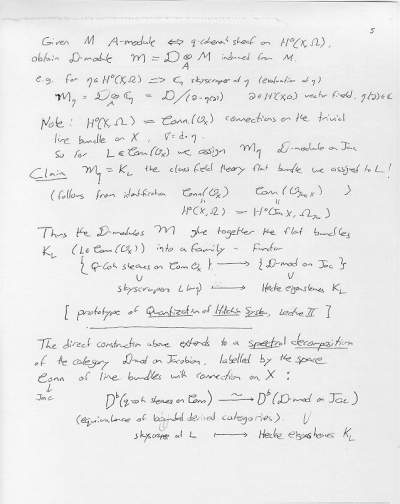 5
Given M A-module ⟺ q-coherent sheaf on H⁰(X,Ω),
obtain D-module M = D ⊗_A M induced from M.
e.g. for η ∈ H⁰(X,Ω) ⟹ C_η skyscraper at η (evaluation at η)
M_η = D ⊗_A C_η = D/(∂-η(∂)) ∂∈H⁰(X,Θ) vector field, η(∂)∈C
Note: H⁰(X,Ω) ≃ Conn(O_X) connections on the trivial
line bundle on X, ∇ = d+η.
So for L ∈ Conn(O_X) we assign M_η D-module on Jac
Claim M_η = K_L the class field theory flat bundle we assigned to L!
(follows from identification Conn(O_X) Conn(O_Jac X) )
H⁰(X,Ω) = H⁰(Jac X, Ω_Jac)
Thus the D-modules M glue together the flat bundles
K_L (L∈Conn(O_X)) into a family - Functor
{ Q-Coh sheaves on Conn O_X } ⟶ { D-mod on Jac }
skyscraper on L (=η) ⟼ Hecke eigensheaves K_L
[ prototype of Quantization of Hitchin System, Lecture II ]
The direct construction above extends to a spectral decomposition
of the category D-mod on Jacobian, labelled by the space
Conn of line bundles with connection on X :
↓
Jac
Dᵇ(q-coh sheaves on Conn) ⥲ Dᵇ(D-mod on Jac)
(equivalence of bounded derived categories).
skyscraper at L ⟼ Hecke eigensheaves K_L